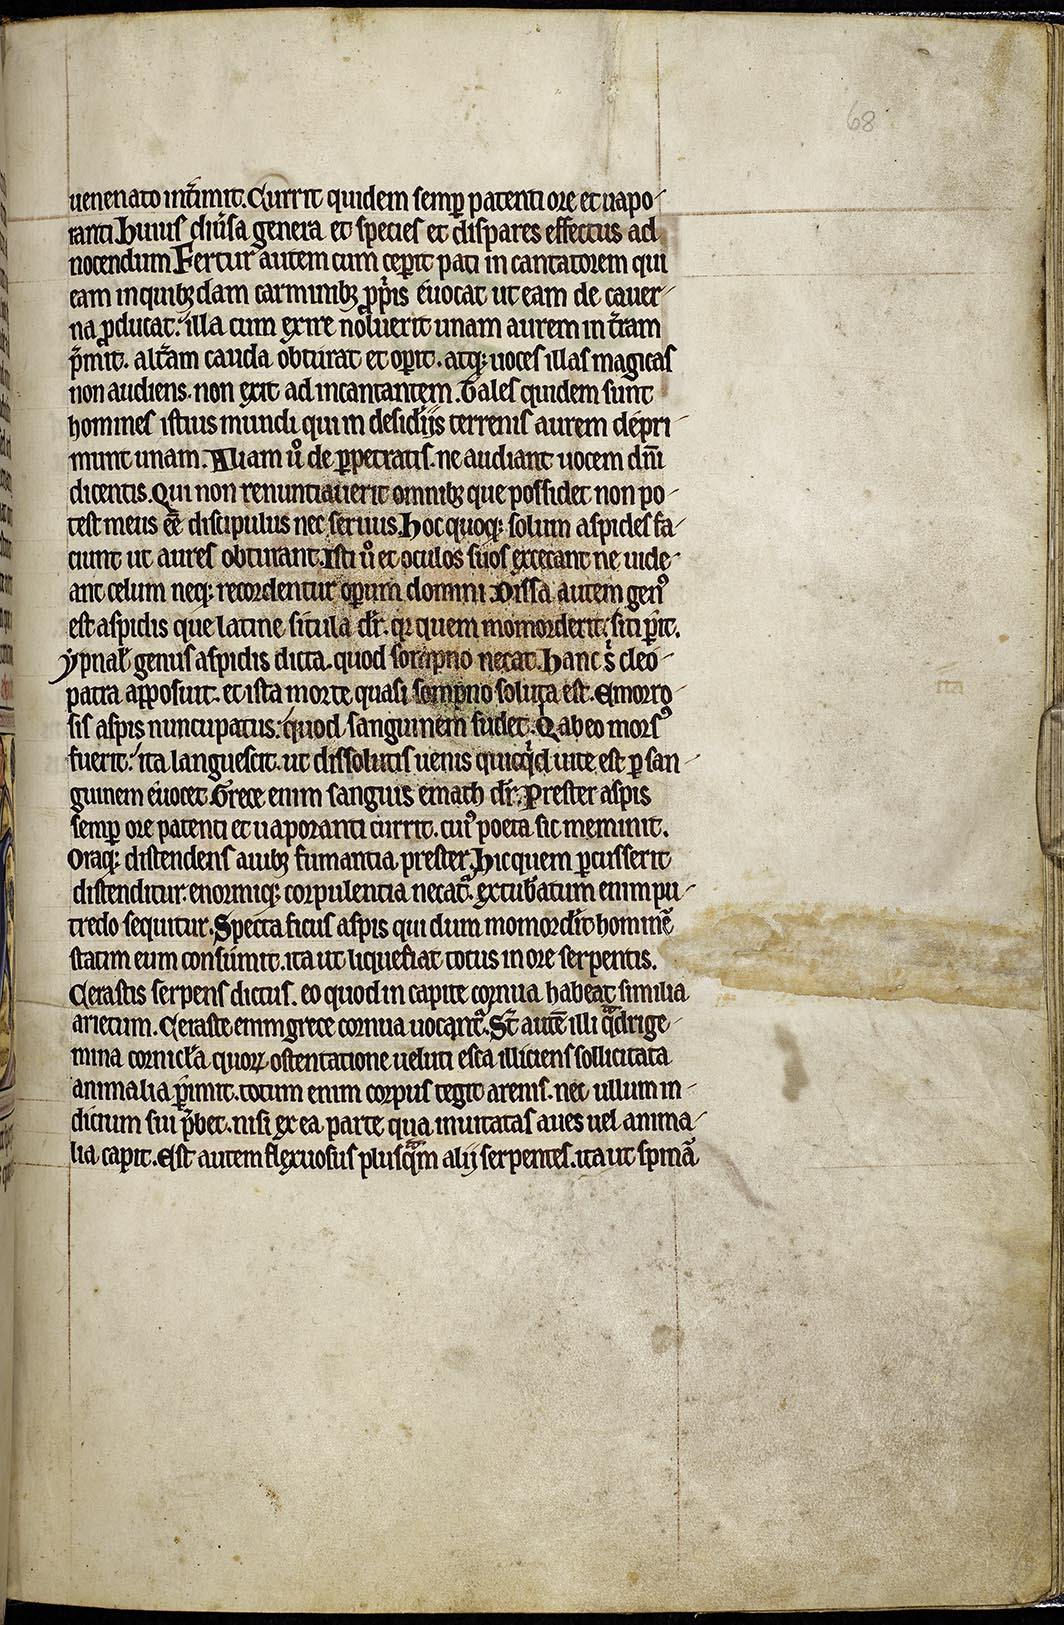 68
uenenato int̃imit. Currit quidem semp̱ patenti ore et uapo-
ranti huius diu̾sa genera et species et dispares effectus ad
nocendum Fertur autem cum cep̱it pati in cantatorem qui
eam inquibꝫdam carminibꝫ pp̱is euocat ut eam de cauer-
na ꝓducat. illa cum exire noluerit unam aurem in t̾ram
p̾mit. alt̾am cauda obturat et op̱it. atqꝫ uoces illas magicas
non audiens. non exit ad incantantem. Tales quidem sunt
homines istius mundi qui in desidijs terrenis aurem depri-
munt unam. Aliam ů de ꝑpetratis. ne audiant uocem dn̄i
dicentis. Qui non renuntiauerit omnibꝫ que possidet non po-
test meus eē discipulus nec seruus. Hoc quoqꝫ solum aspides fa-
ciunt ut aures obturant. Isti ů et oculos suos excecant ne uide-
ant celum neqꝫ recordentur oꝑum domini Dissa autem genꝰ
est aspidis que latine situla dr̄. qr quem momorderit. siti ꝑit.
ypnał genus aspidis dicta. quod sompno necat. hanc s̾ cleo-
patra apposuit. et ista morte quasi sompno soluta est. Emorro-
sis aspis nuncupatus. quod sanguinem sudet. Q abeo morsꝰ
fuerit. ita languescit. ut dissolutis uenis quicqͥd uite est ꝑ san-
guinem euocet Grece enim sanguis emath dr̄. Prester aspis
semꝑ ore patenti et uaporanti currit. cuiꝰ poeta sic meminit.
Oraqꝫ distendens auibꝫ fumantia prester. Hic quem ꝑcusserit
distenditur. enormiqꝫ corpulentia necat᷑. extub̾atum enim pu-
tredo sequitur. Specta ficus aspis qui dum momord̾it hominē
statim eum consumit. ita ut liquefiat totus in ore serpentis.
Cerastis serpens dictus. eo quod in capite cornua habeat similia
arietum. Ceraste enim grece cornua uocant᷑. St̄ autē illi qͣdrige-
mina cornicl̾a quoꝝ ostentatione ueluti esca illiciens sollicitata
animalia ꝑimit. totum enim corpus tegit arenis. nec ullum in-
dicium sui p̾bet. nisi ex ea parte qua inuitatas aues uel anima-
lia capit. Est autem flexuosus plusqͣm alij serpentes. ita ut spinā